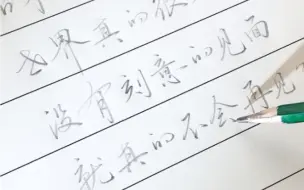 世界真的很
没有刻意的见面
就真的不会再见